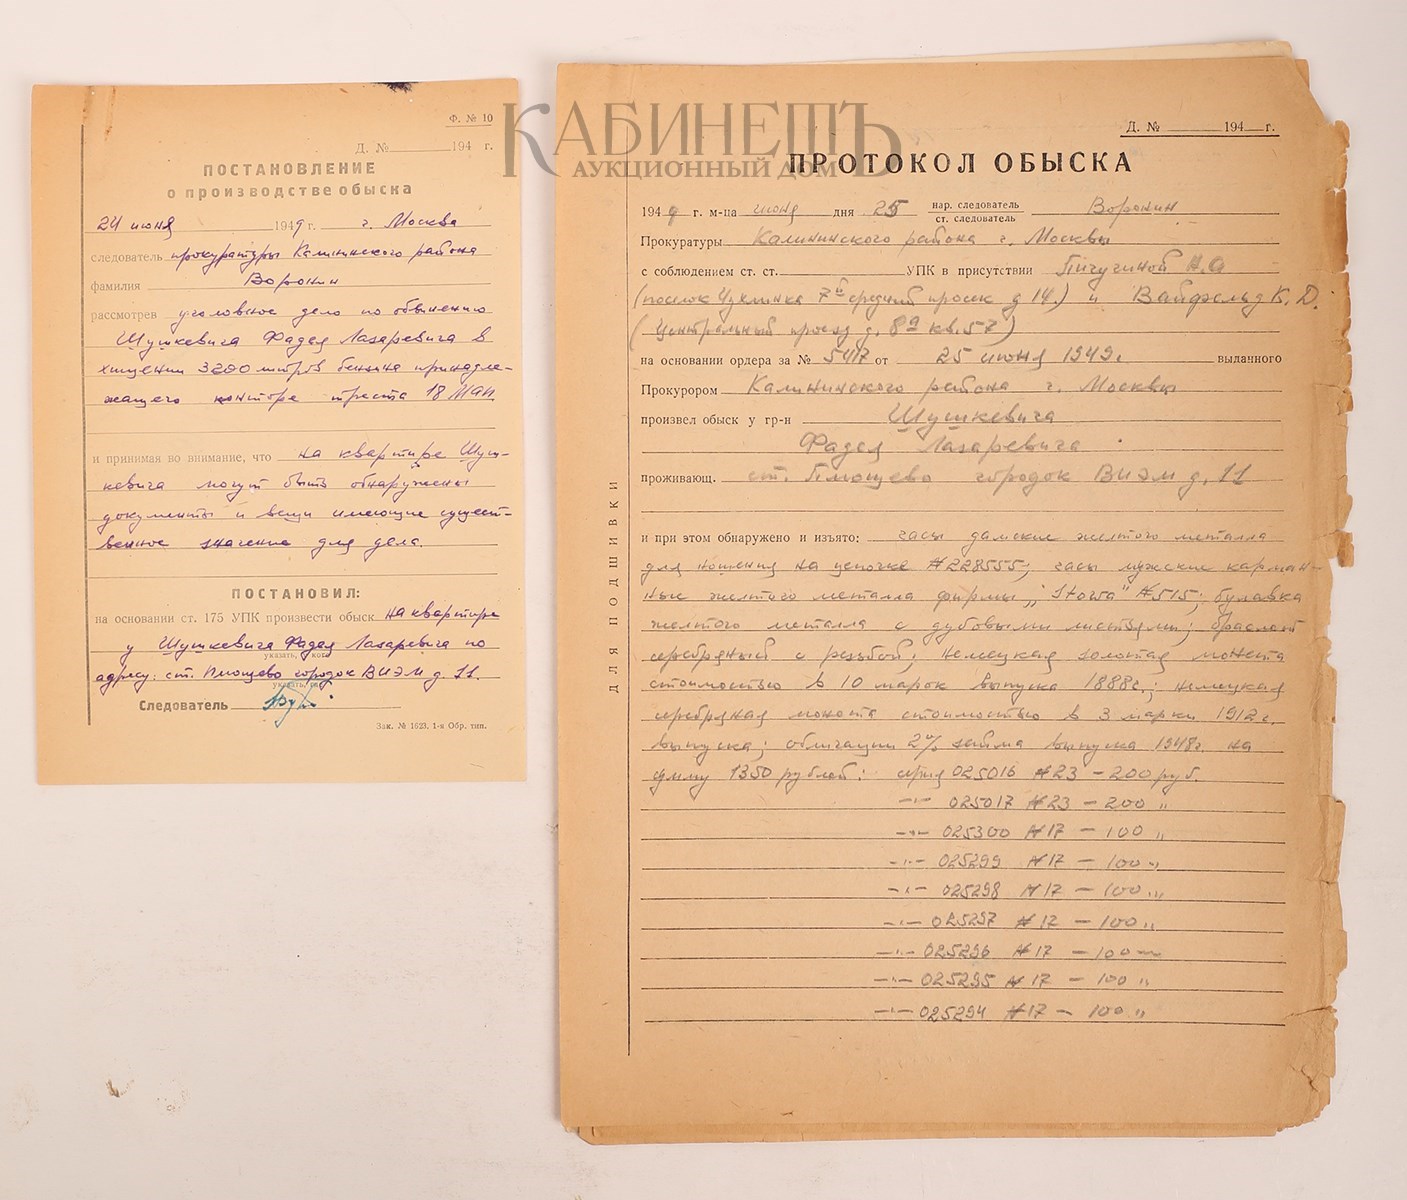 КАБИНЕТЪ
АУКЦИОННЫЙ ДОМ
Ф. № 10
Д. № 194 г.
ПОСТАНОВЛЕНИЕ
о производстве обыска
24 июня 1949 г. г. Москва
следователь прокуратуры Калининского района
фамилия Воронин
рассмотрев уголовное дело по обвинению
Шушкевича Фадея Лазаревича в
хищении 3200 литров бензина принадле-
жащего конторе треста 18 МАП
и принимая во внимание, что на квартире Шуш-
кевича могут быть обнаружены
документы и вещи имеющие сущест-
венное значение для дела.
ПОСТАНОВИЛ:
на основании ст. 175 УПК произвести обыск на квартире
у Шушкевича Фадея Лазаревича по
указать, у кого
адресу: ст. Плющево городок ВИЭМ д. 11.
Следователь
Зак. № 1623, 1-я Обр. тип.
ДЛЯ ПОДШИВКИ
Д. № 194 г.
ПРОТОКОЛ ОБЫСКА
1949 г. м-ца июня дня 25 нар. следователь Воронин
ст. следователь
Прокуратуры Калининского района г. Москвы
с соблюдением ст. ст. УПК в присутствии Пичугиной А.О
(поселок Чухлинка 7й средний просек д 14.) и Вайфельд К. Д.
(Центральный проезд д. 8а кв. 57)
на основании ордера за № 5417 от 25 июня 1949 г. выданного
Прокурором Калининского района г. Москвы
произвел обыск у гр-н Шушкевича
Фадея Лазаревича
проживающ. ст. Плющево городок ВИЭМ д. 11
и при этом обнаружено и изъято: часы дамские желтого металла
для ношения на цепочке №228555; часы мужские карман-
ные желтого металла фирмы „Stowa" №515; булавка
желтого металла с дубовыми листьями; браслет
серебряный с резьбой; немецкая золотая монета
стоимостью в 10 марок выпуска 1888г.; немецкая
серебряная монета стоимостью в 3 марки 1912 г.
выпуска; облигации 2% займа выпуска 1948г. на
сумму 1350 рублей: серия 025016 №23 – 200 руб.
–"– 025017 №23 – 200 "
–"– 025300 №17 – 100 "
–"– 025299 №17 – 100 "
–"– 025298 №17 – 100 "
–"– 025297 №17 – 100 "
–"– 025296 №17 – 100 "
–"– 025295 №17 – 100 "
–"– 025294 №17 – 100 "